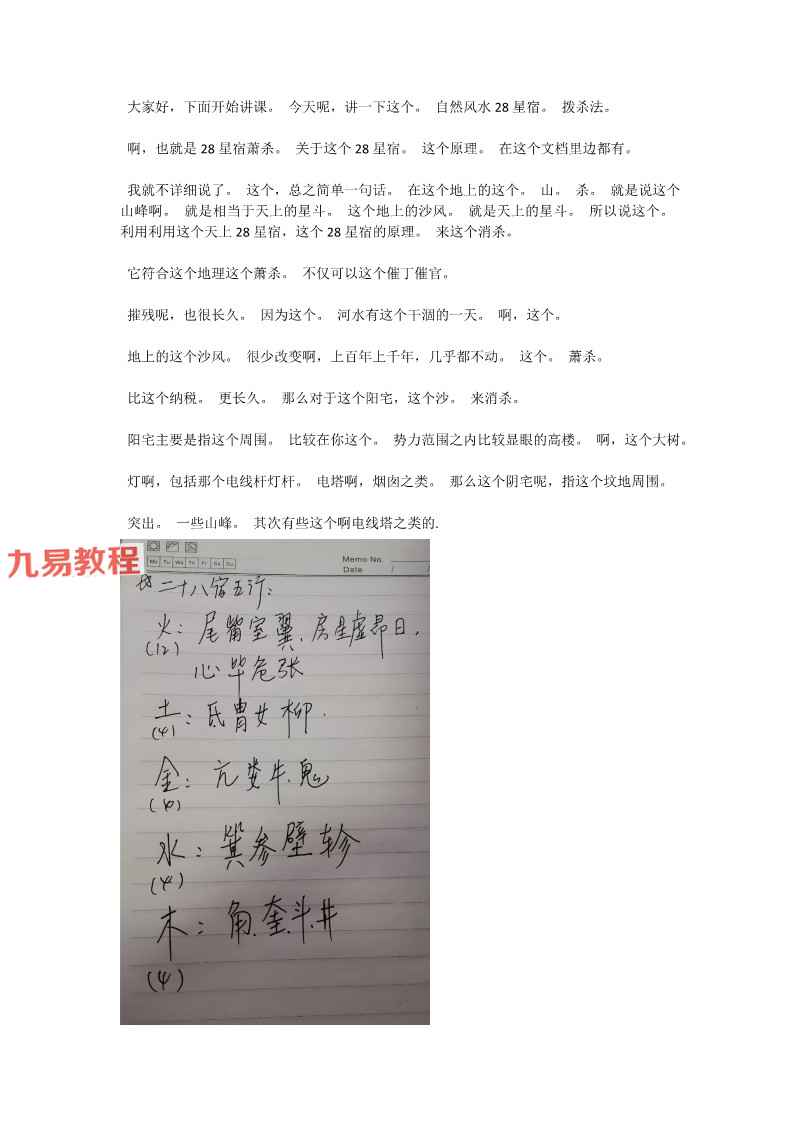 大家好，下面开始讲课。 今天呢，讲一下这个。 自然风水 28 星宿。 拨杀法。
啊，也就是 28 星宿萧杀。 关于这个 28 星宿。 这个原理。 在这个文档里边都有。
我就不详细说了。 这个，总之简单一句话。 在这个地上的这个。 山。 杀。 就是说这个
山峰啊。 就是相当于天上的星斗。 这个地上的沙风。 就是天上的星斗。 所以说这个。
利用利用这个天上 28 星宿，这个 28 星宿的原理。 来这个消杀。
它符合这个地理这个萧杀。 不仅可以这个催丁催官。
摧残呢，也很长久。 因为这个。 河水有这个干涸的一天。 啊，这个。
地上的这个沙风。 很少改变啊，上百年上千年，几乎都不动。 这个。 萧杀。
比这个纳税。 更长久。 那么对于这个阳宅，这个沙。 来消杀。
阳宅主要是指这个周围。 比较在你这个。 势力范围之内比较显眼的高楼。 啊，这个大树。
灯啊，包括那个电线杆灯杆。 电塔啊，烟囱之类。 那么这个阴宅呢，指这个坟地周围。
突出。 一些山峰。 其次有些这个啊电线塔之类的.
九易教程
Mo Tu We Th Fr Sa Su
Memo No.
Date / /
二十八宿五行：
火：尾觜室翼、房星虚昴日，
(12)
心毕危张
土：氐胃女柳.
(4)
金：亢娄牛.鬼
(4)
水：箕参壁轸
(4)
木：角.奎.斗.井
(4)